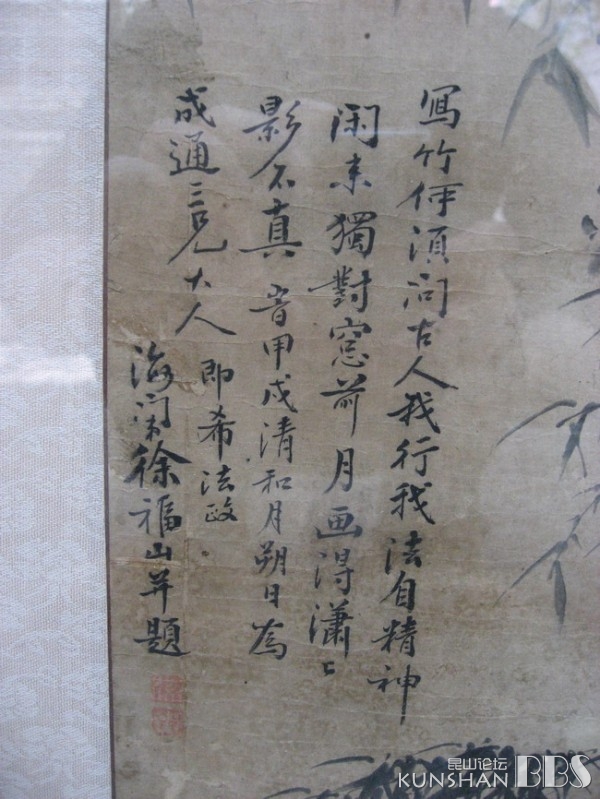 寫竹何須问古人我行我法自精神
闲来獨對窓前月画得瀟〻
影不真 旹甲戌清和月朔日為
成通三兄大人 即希法政
海门徐福山并題
昆山论坛
KUNSHAN BBS